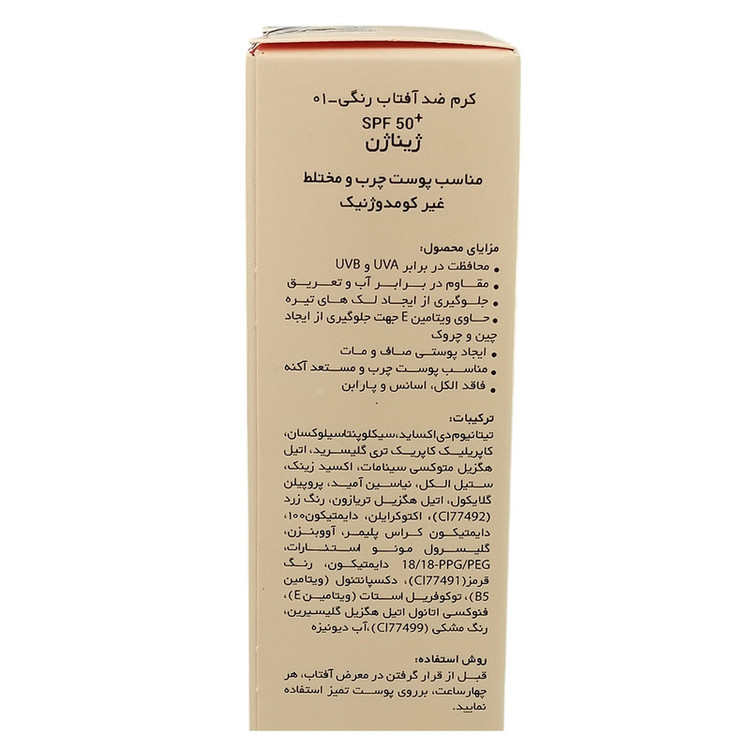 کرم ضد آفتاب رنگی-۰۱
SPF 50+
ژیناژن
مناسب پوست چرب و مختلط
غیر کومدوژنیک
مزایای محصول:
• محافظت در برابر UVA و UVB
• مقاوم در برابر آب و تعریق
• جلوگیری از ایجاد لک های تیره
• حاوی ویتامین E جهت جلوگیری از ایجاد
چین و چروک
• ایجاد پوستی صاف و مات
• مناسب پوست چرب و مستعد آکنه
• فاقد الکل، اسانس و پارابن
ترکیبات:
تیتانیوم دی‌اکساید، سیکلوپنتاسیلوکسان،
کاپریلیک کاپریک تری گلیسرید، اتیل
هگزیل متوکسی سینامات، اکسید زینک،
ستیل الکل، نیاسین آمید، پروپیلن
گلایکول، اتیل هگزیل تریازون، رنگ زرد
(CI77492)، اکتوکرایلن، دایمتیکون۱۰۰،
دایمتیکون کراس پلیمر، آووبنزن،
گلیسرول مونو استئارات،
18/18-PPG/PEG دایمتیکون، رنگ
قرمز(CI77491)، دکسپانتنول (ویتامین
B5)، توکوفریل استات (ویتامین E)،
فنوکسی اتانول اتیل هگزیل گلیسیرین،
رنگ مشکی (CI77499)،آب دیونیزه
روش استفاده:
قبل از قرار گرفتن در معرض آفتاب، هر
چهارساعت، برروی پوست تمیز استفاده
نمایید.